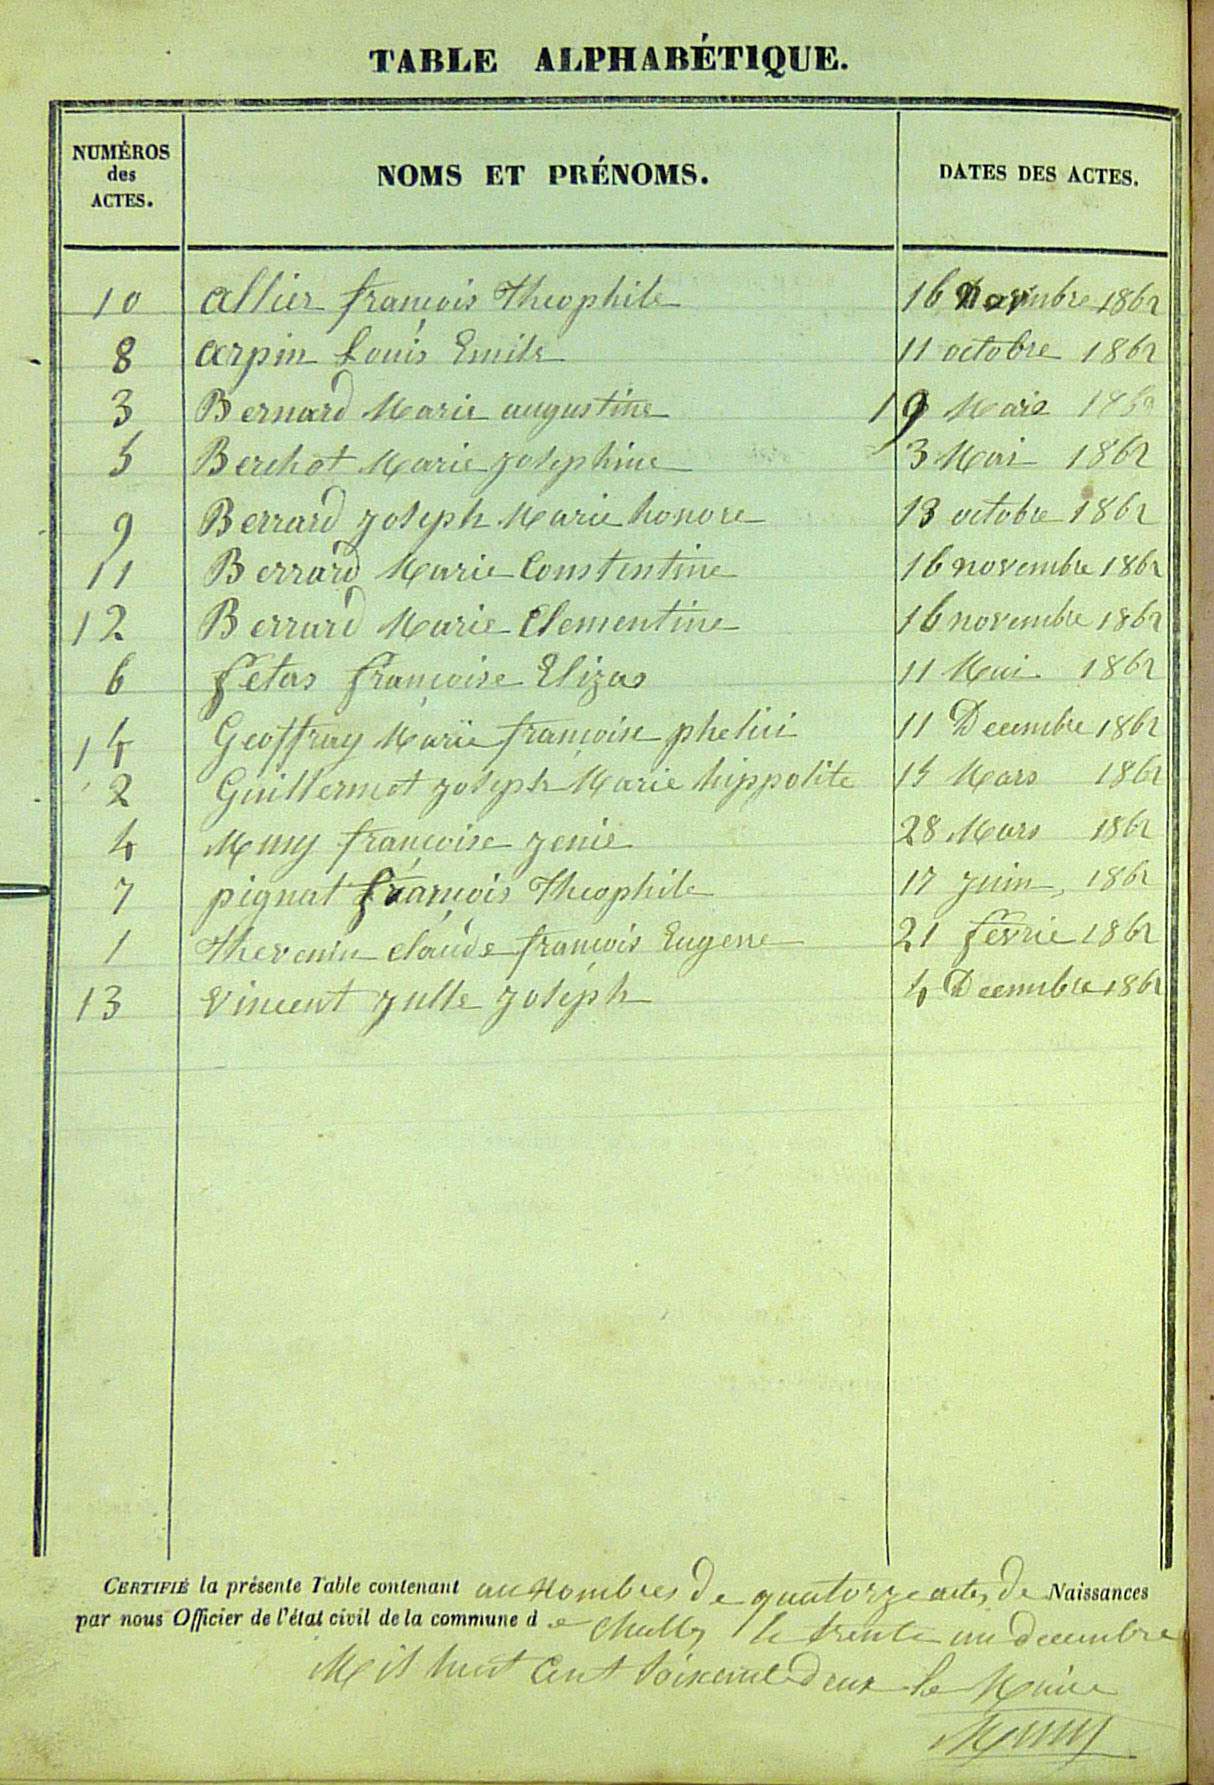 TABLE ALPHABÉTIQUE.
NUMÉROS des ACTES. NOMS ET PRÉNOMS. DATES DES ACTES.
10 Allier françois Theophile 16 Novembre 1862
8 Arpin Louis Emile 11 octobre 1862
3 Bernard Marie augustine 19 Mars 1862
5 Berchot Marie josephine 3 Mai 1862
9 Berrard joseph Marie honore 13 octobre 1862
11 Berrard Marie Constentine 16 novembre 1862
12 Berrard Marie Clementine 16 novembre 1862
6 fetas françoise Elizas 11 Mai 1862
14 Geoffray Marie françoise 11 Decembre 1862
2 Guillermot joseph Marie hippolite 15 Mars 1862
4 françoise jenie 28 Mars 1862
7 pignat françois Theophile 17 juin 1862
1 Thevenin claude françois Eugene 21 fevrie 1862
13 Vincent julle joseph 4 Decembre 1862
CERTIFIÉ la présente Table contenant au Nombres de quatorze actes de Naissances
par nous Officier de l'état civil de la commune de le trente un decembre
Mil huit Cent Soixente deux le Maire